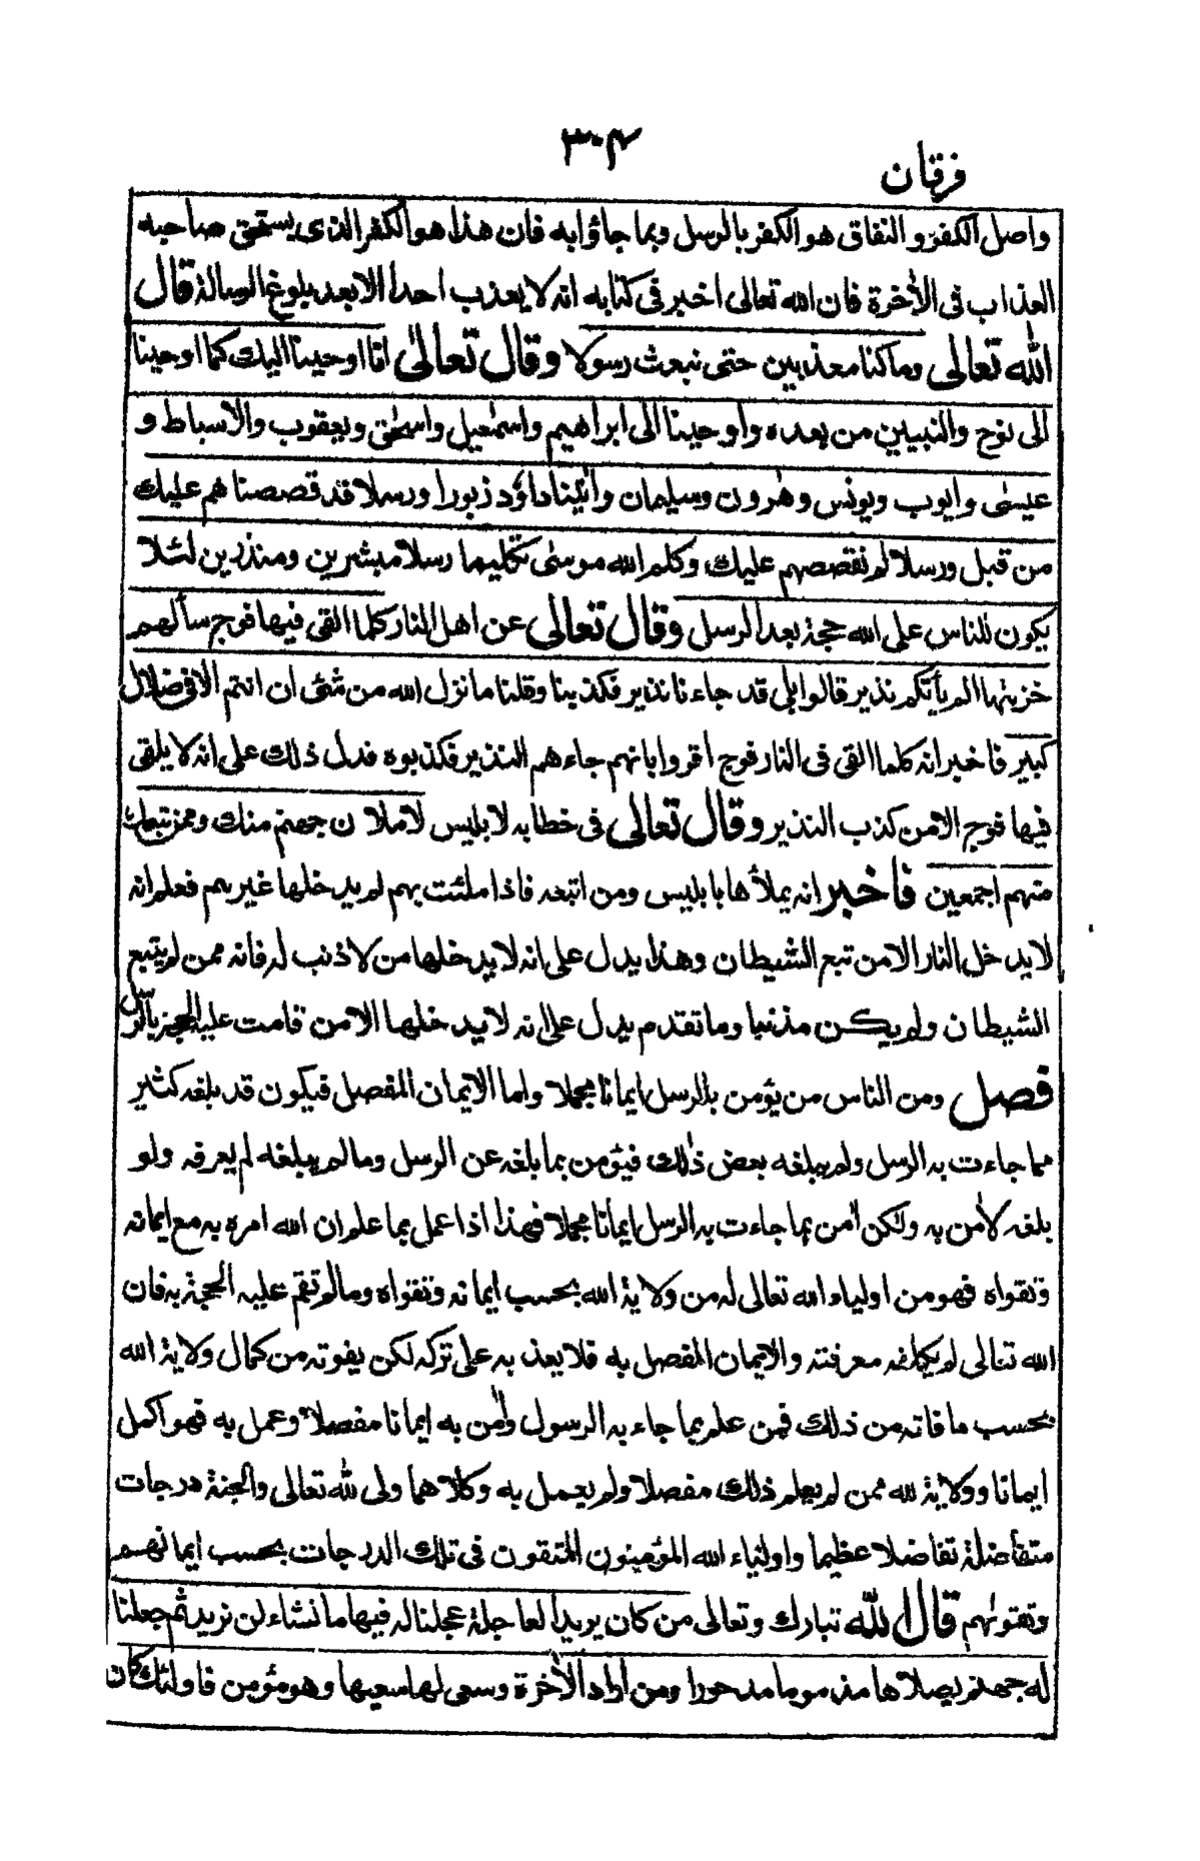 ٣٠٤
فرقان
واصل الكفر و النفاق هو الكفر بالرسل وبما جاؤا به فان هذا هو الكفر الذى يستحق صاحبه
العذاب فى الأخرة فان الله تعالى اخبر فى كتابه انه لا يعذب احدا الا بعد بلوغ الرسالة قال
الله تعالى وما كنا معذبين حتى نبعث رسولا وقال تعالىٰ انا اوحينا اليك كما اوحينا
الى نوح والنبيين من بعده واوحينا الى ابراهيم واسمٰعيل واسحٰق ويعقوب والاسباط و
عيسٰى وايوب ويونس وهٰرون وسليمان واٰتينا داؤد زبورا ورسلا قد قصصنا هم عليك
من قبل ورسلا لم نقصصهم عليك وكلم الله موسٰى تكليما رسلا مبشرين ومنذرين لئلا
يكون للناس على الله حجة بعد الرسل وقال تعالى عن اهل النار كلما القى فيها فوج سألهم
خزنتها الم يأتكم نذير قالوا بلى قد جاءنا نذير فكذبنا وقلنا ما نزل الله من شئ ان انتم الا فى ضلال
كبير فاخبر انه كلما القى فى النار فوج اقروا بانهم جاءهم النذير فكذبوه فدل ذلك على انه لا يلقى
فيها فوج الا من كذب النذير وقال تعالى فى خطابه لابليس لاملان جهنم منك وممن تبعك
منهم اجمعين فاخبر انه يملأها بابليس ومن اتبعه فاذا ملئت بهم لم يدخلها غيرهم فعلم انه
لا يدخل النار الا من تبع الشيطان وهذا يدل على انه لا يدخلها من لا ذنب له فانه ممن لم يتبع
الشيطان ولم يكن مذنبا وما تقدم يدل على انه لا يدخلها الا من قامت عليه الحجة بالرسل
فصل ومن الناس من يؤمن بالرسل ايمانا مجملا واما الايمان المفصل فيكون قد بلغه كثير
مما جاءت به الرسل ولم يبلغه بعض ذٰلك فيؤمن بما بلغه عن الرسل وما لم يبلغه لم يعرفه ولو
بلغه لاٰمن به ولكن اٰمن بما جاءت به الرسل ايمانا مجملا فهذا اذا عمل بما علم ان الله امره به مع ايمانه
وتقواه فهو من اولياء الله تعالى له من ولاية الله بحسب ايمانه وتقواه وما لم تقم عليه الحجة به فان
الله تعالى لم يكلفه معرفته والايمان المفصل به فلا يعذبه على تركه لكن يفوته من كمال ولاية الله
بحسب ما فاته من ذلك فمن علم بما جاء به الرسول واٰمن به ايمانا مفصلا وعمل به فهو اكمل
ايمانا وولاية لله ممن لم يعلم ذلك مفصلا ولم يعمل به وكلاهما ولى لله تعالى والجنة درجات
متفاضلة تفاضلا عظيما واولياء الله المؤمنون المتقون فى تلك الدرجات بحسب ايمانهم
وتقوٰىهم قال الله تبارك وتعالى من كان يريد العاجلة عجلنا له فيها ما نشاء لمن نريد ثم جعلنا
له جهنم يصلاها مذموما مدحورا ومن اراد الاٰخرة وسعى لها سعيها وهو مؤمن فاولئك كان